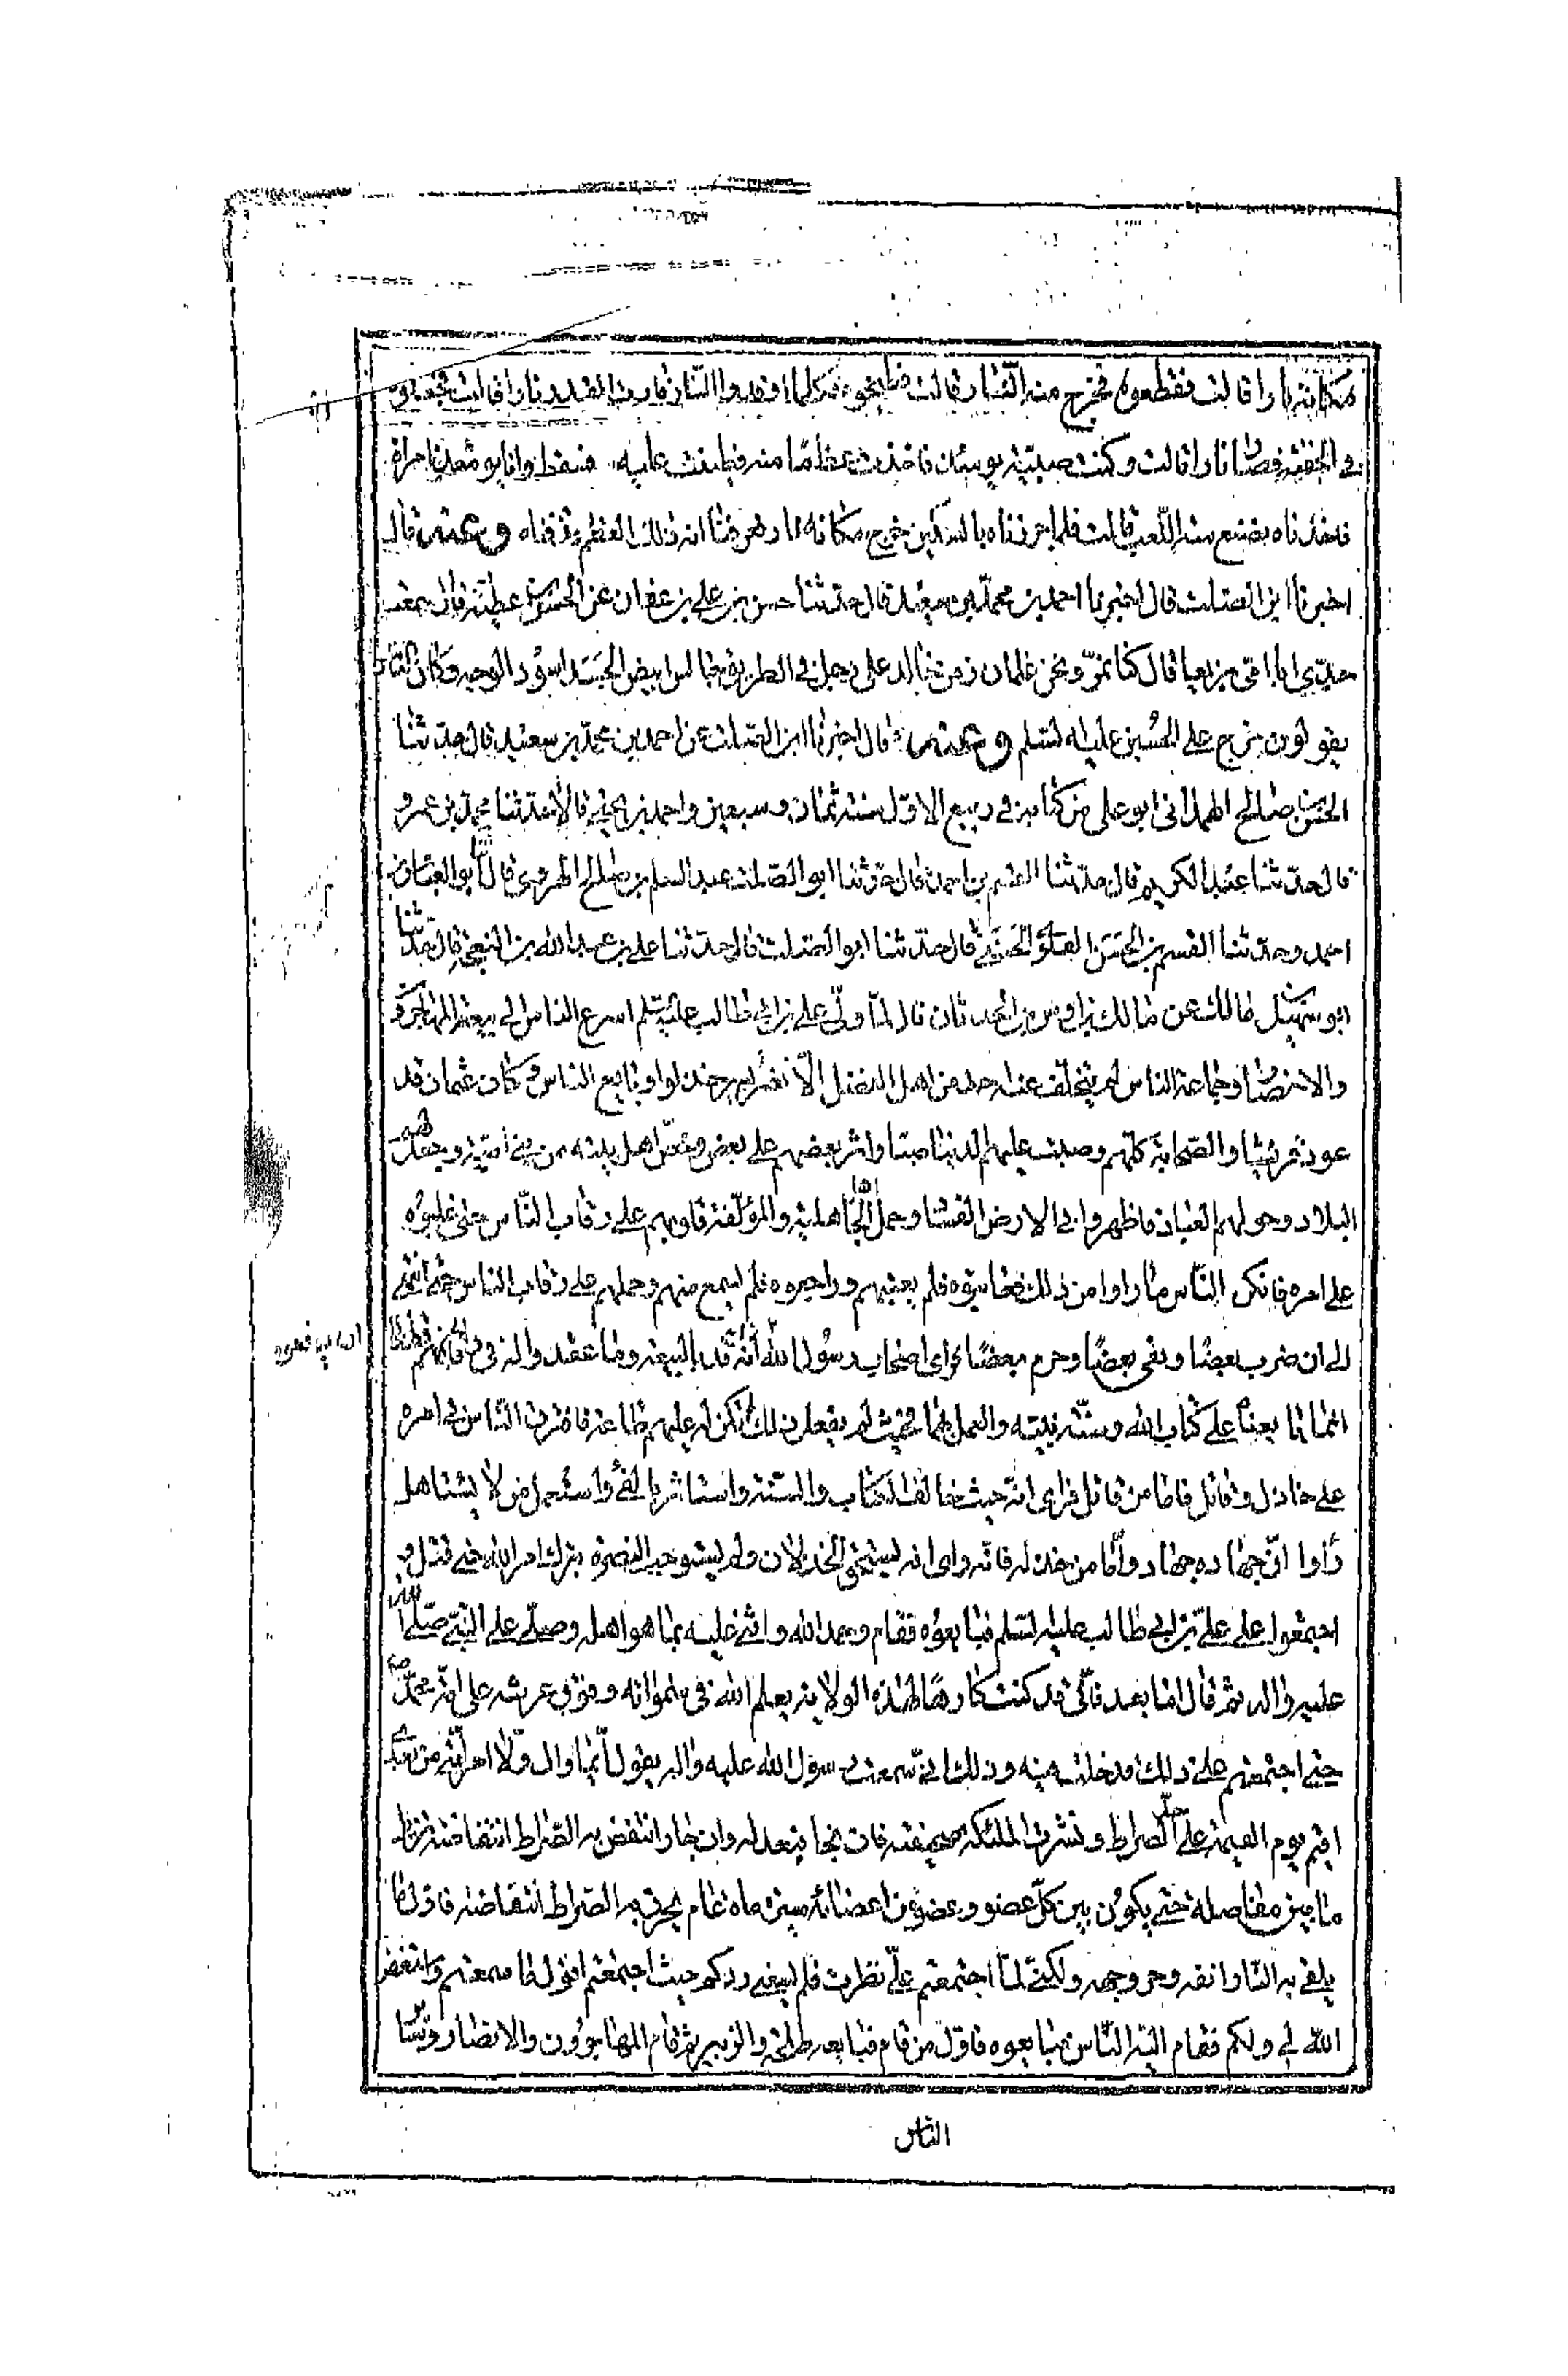 مكانه نارا قالت فقطعوه فخرج منه النار قالت فطبخوه فكلما اوقدوا النار فارت القدر نارا قالت فجعلوه
في الجفنة فصار نارا قالت وكنت صبية يومئذ فاخذت عظاما منه فطينت عليه فسقط وانا يومئذ امراة
فاخذناه نصنع منه اللعب قالت فلما حززناه بالسكين خرج مكانه نار فعرفنا انه ذلك العظم فدفناه وعنه قال
اخبرنا ابن الصلت قال اخبرنا احمد بن محمد بن سعيد قال حدثنا حسن بن علي بن عفان عن الحسن بن عطية قال سمعت
جدي ابا امي بزيعا قال كنا نمر ونحن غلمان زمن خالد على رجل في الطريق جالس ابيض الجسد اسود الوجه وكان الناس
يقولون خرج على الحسين عليه السلم وعنه قال اخبرنا ابن الصلت عن احمد بن محمد بن سعيد قال حدثنا
الحسن بن صالح الهمداني ابو علي من كتابه في ربيع الاول سنة ثمان وسبعين واحمد بن يحيى قالا حدثنا محمد بن عمرو
قال حدثنا عبد الكريم قال حدثنا القسم بن احمد قال حدثنا ابو الصلت عبد السلم بن صالح الهروي قال ابو العباس
احمد وحدثنا القسم بن الحسن العلوي الحسني قال حدثنا ابو الصلت قال حدثنا علي بن عبد الله بن النعجة قال حدثنا
ابو سهيل بن مالك عن مالك بن اوس بن الحدثان قال لما ولي علي بن ابي طالب عليه السلم اسرع الناس الى بيعته المهاجرون
والانصار وجماعة الناس لم يتخلف عنه احد من اهل الفضل الا نفر يسير خذلوا وبايع الناس وكان عثمان قد
عود قريشا والصحابة كلهم وصبت عليهم الدنيا صبا واثر بعضهم على بعض وخص اهل بيته من بني امية وجعل لهم
البلاد وخولهم العباد فاظهروا في الارض الفساد وحمل اهل الجاهلية والمؤلفة قلوبهم على رقاب الناس حتى غلبوه
على امره فانكر الناس ما راوا من ذلك فعاتبوه فلم يعتبهم وراجعوه فلم يسمع منهم وحملهم على رقاب الناس حتى انتهى
الى ان ضرب بعضا ونفى بعضا وحرم بعضا فراى اصحاب رسول الله ان قد بالبيعة وما عقدوا له في رقابهم
انما بايعناه على كتاب الله وسنة نبيه والعمل بهما فحيث لم يفعل ذلك لم تكن له عليهم طاعة فافترق الناس في امره
على خاذل وقاتل فاما من قاتل فراى انه حيث خالف الكتاب والسنة واستاثر بالفيء واستعمل من لا يستاهل
راوا ان جهاده جهاد واما من خذله فانه راى انه يستحق الخذلان ولم يستوجب النصرة بترك امر الله حتى قتل و
اجتمعوا على علي بن ابي طالب عليه السلم فبايعوه فقام وحمد الله واثنى عليه بما هو اهله وصلى على النبي صلى الله
عليه واله ثم قال اما بعد فاني قد كنت كارها لهذه الولاية يعلم الله في سمواته وفوق عرشه على امة محمد ص
حتى اجتمعتم على ذلك فدخلت فيه وذلك اني سمعت رسول الله عليه واله يقول ايما وال ولي امر امتي من بعدي
اقيم يوم القيمة على حد الصراط ونشرت الملئكة صحيفته فان نجا فبعدله وان جار انتقض به الصراط انتقاضة تزيل
ما بين مفاصله حتى يكون بين كل عضو وعضو من اعضائه مسيرة ماة عام يخرق به الصراط انتقاضته فاول ما
يلقى به النار انفه وحر وجهه ولكني لما اجتمعتم علي نظرت فلم يسعني ردكم حيث اجتمعتم اقول ما سمعتم واستغفر
الله لي ولكم فقام اليه الناس فبايعوه فاول من قام فبايعه طلحة والزبير ثم قام المهاجرون والانصار وساير
الناس